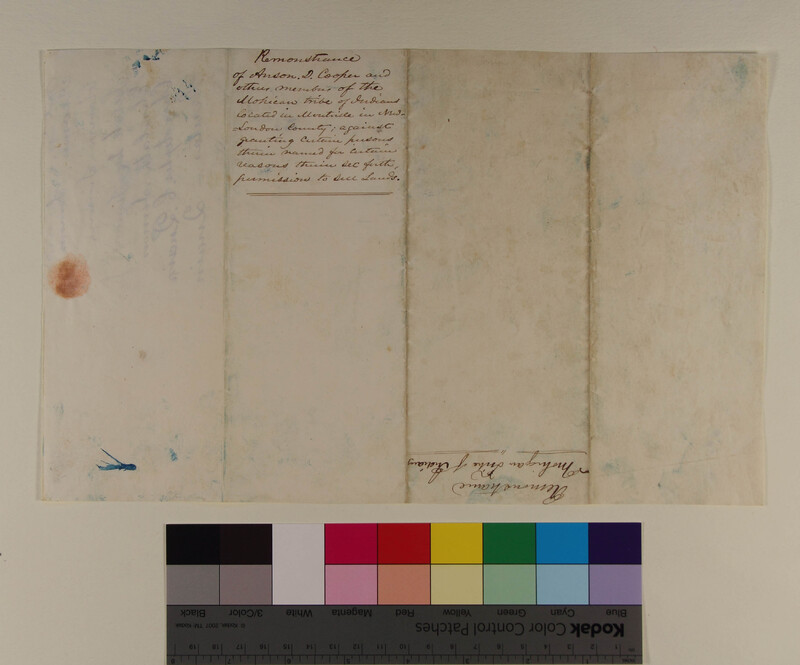 Remonstrance
of Anson. D. Cooper and
others, members of the
Mohican tribe of Indians
located in Montville in New-
London County; against
granting certain persons
therein named for certain
reasons therein set forth,
permissions to sell Lands.
Remonstrance
Mohegan Tribe of Indians
Blue Cyan Green Yellow Red Magenta White 3/Color Black
Kodak Color Control Patches